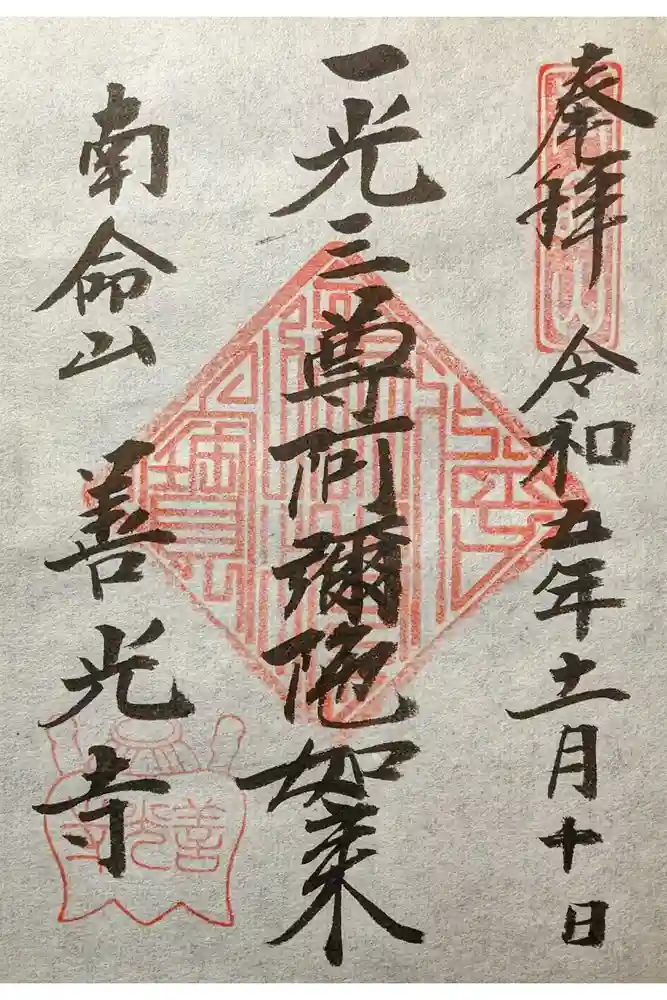 奉拝
令和五年十一月十日
一光三尊阿彌陀如来
南命山
善光寺
善光寺